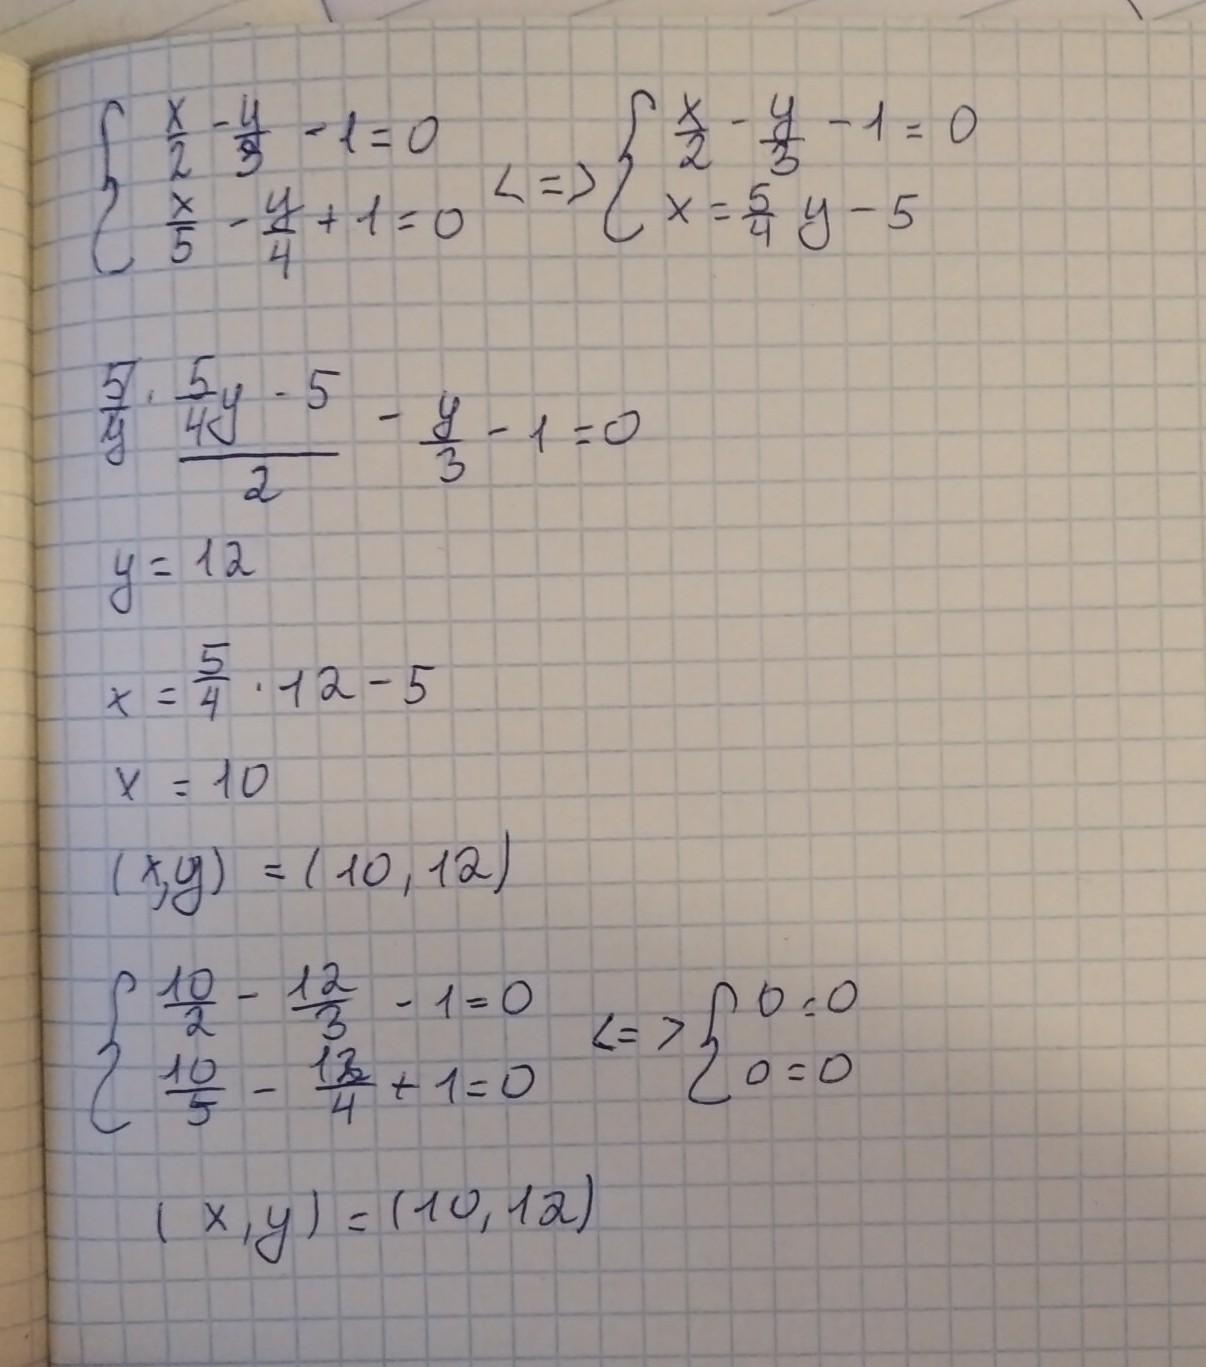 { x/2 - y/3 - 1 = 0 <=> { x/2 - y/3 - 1 = 0
x/5 - y/4 + 1 = 0 x = 5/4 y - 5
5/4 · (5/4 y - 5)/2 - y/3 - 1 = 0
y = 12
x = 5/4 · 12 - 5
x = 10
(x,y) = (10, 12)
{ 10/2 - 12/3 - 1 = 0 <=> { 0 = 0
10/5 - 12/4 + 1 = 0 0 = 0
(x, y) = (10, 12)